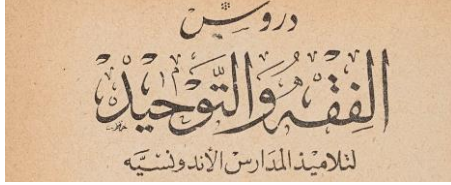 دروس
الفِقْهِ وَالتَّوْحِيْدِ
لتلاميذ المدَارسْ الأندونسيَّه